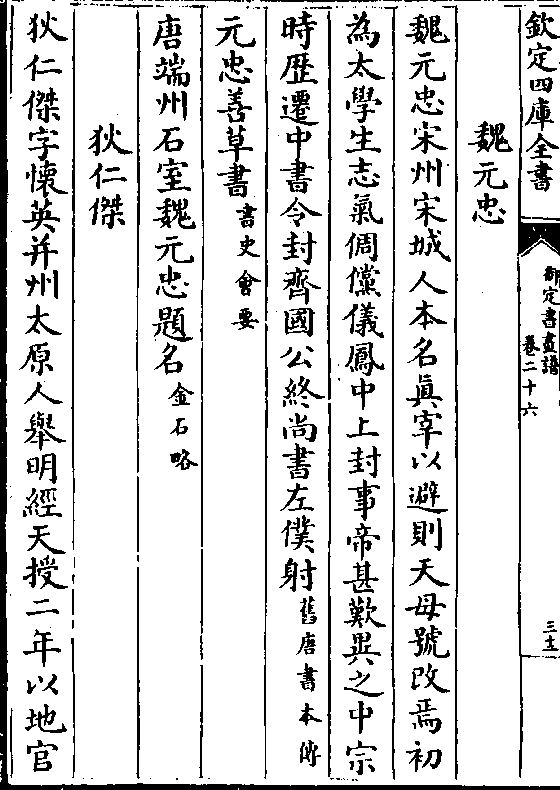 欽定四庫全書
御定書畫譜
卷二十六
三十五
魏元忠
魏元忠宋州宋城人本名真宰以避則天母號改焉初
為太學生志氣倜儻儀鳳中上封事帝甚歎異之中宗
時歴遷中書令封齊國公終尚書左僕射舊唐書本傳
元忠善草書書史會要
唐端州石室魏元忠題名金石略
狄仁傑
狄仁傑字懷英并州太原人舉明經天授二年以地官